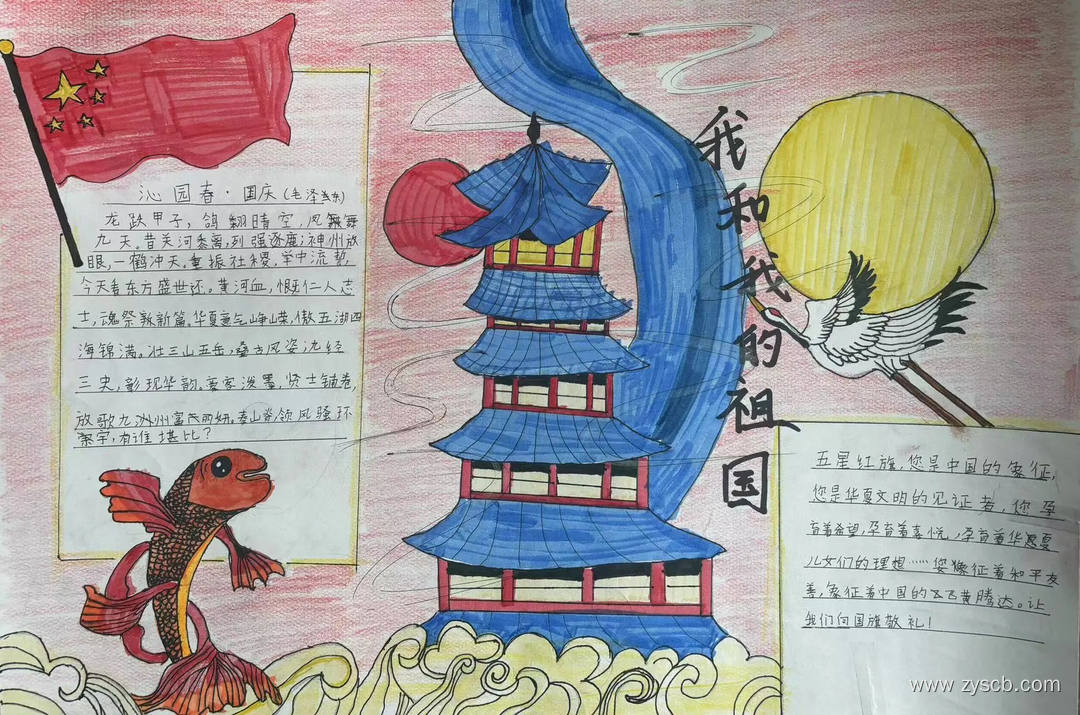 沁园春·国庆(毛泽东)
龙跃甲子,鸽翻晴空,风舞
九天。昔关河黍离,列强逐鹿;神州放
眼,一鹤冲天。重振社稷,中流势,
今天看东方盛世还。黄河血,慨仁人志
士,魂祭新篇。华夏意气峥嵘,傲五湖四
海锦满。壮三山五岳,风姿沈经
三史,彰现华韵,豪客泼墨,贤士铺卷,
放歌九洲州富民妍。泰山脊领风骚环
寰宇,有谁堪比?
我和我的祖国
五星红旗,您是中国的象征,
您是华夏文明的见证者,您孕
育着希望,孕育着喜悦,孕育着华夏
儿女们的理想……您像征着和平友
善,象征着中国的飞黄腾达。让
我们向国旗敬礼!
www.zyscb.com